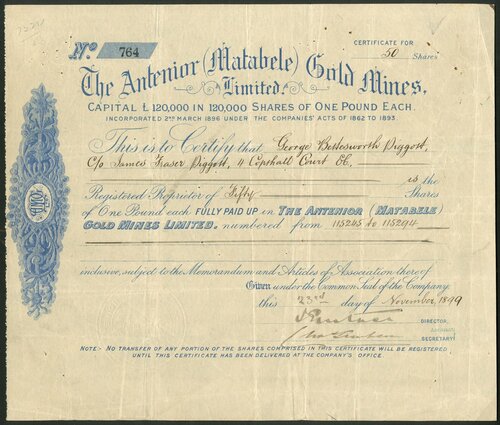 CERTIFICATE FOR
50 Shares
No. 764
The Antenior (Matabele) Gold Mines,
Limited.
CAPITAL £120,000 IN 120,000 SHARES OF ONE POUND EACH.
INCORPORATED 2ND MARCH 1896 UNDER THE COMPANIES' ACTS OF 1862 TO 1893.
This is to Certify that George Bettesworth Piggott,
C/o James Fraser Piggott, 11 Copthall Court EC,
is the
Registered Proprietor of Fifty Shares
of One Pound each FULLY PAID UP in THE ANTENIOR (MATABELE)
GOLD MINES LIMITED. numbered from 115245 to 115294
inclusive, subject to the Memorandum and Articles of Association thereof
Given under the Common Seal of the Company.
this 23rd day of November, 1899
DIRECTOR.
SECRETARY
NOTE:- NO TRANSFER OF ANY PORTION OF THE SHARES COMPRISED IN THIS CERTIFICATE WILL BE REGISTERED
UNTIL THIS CERTIFICATE HAS BEEN DELIVERED AT THE COMPANY'S OFFICE